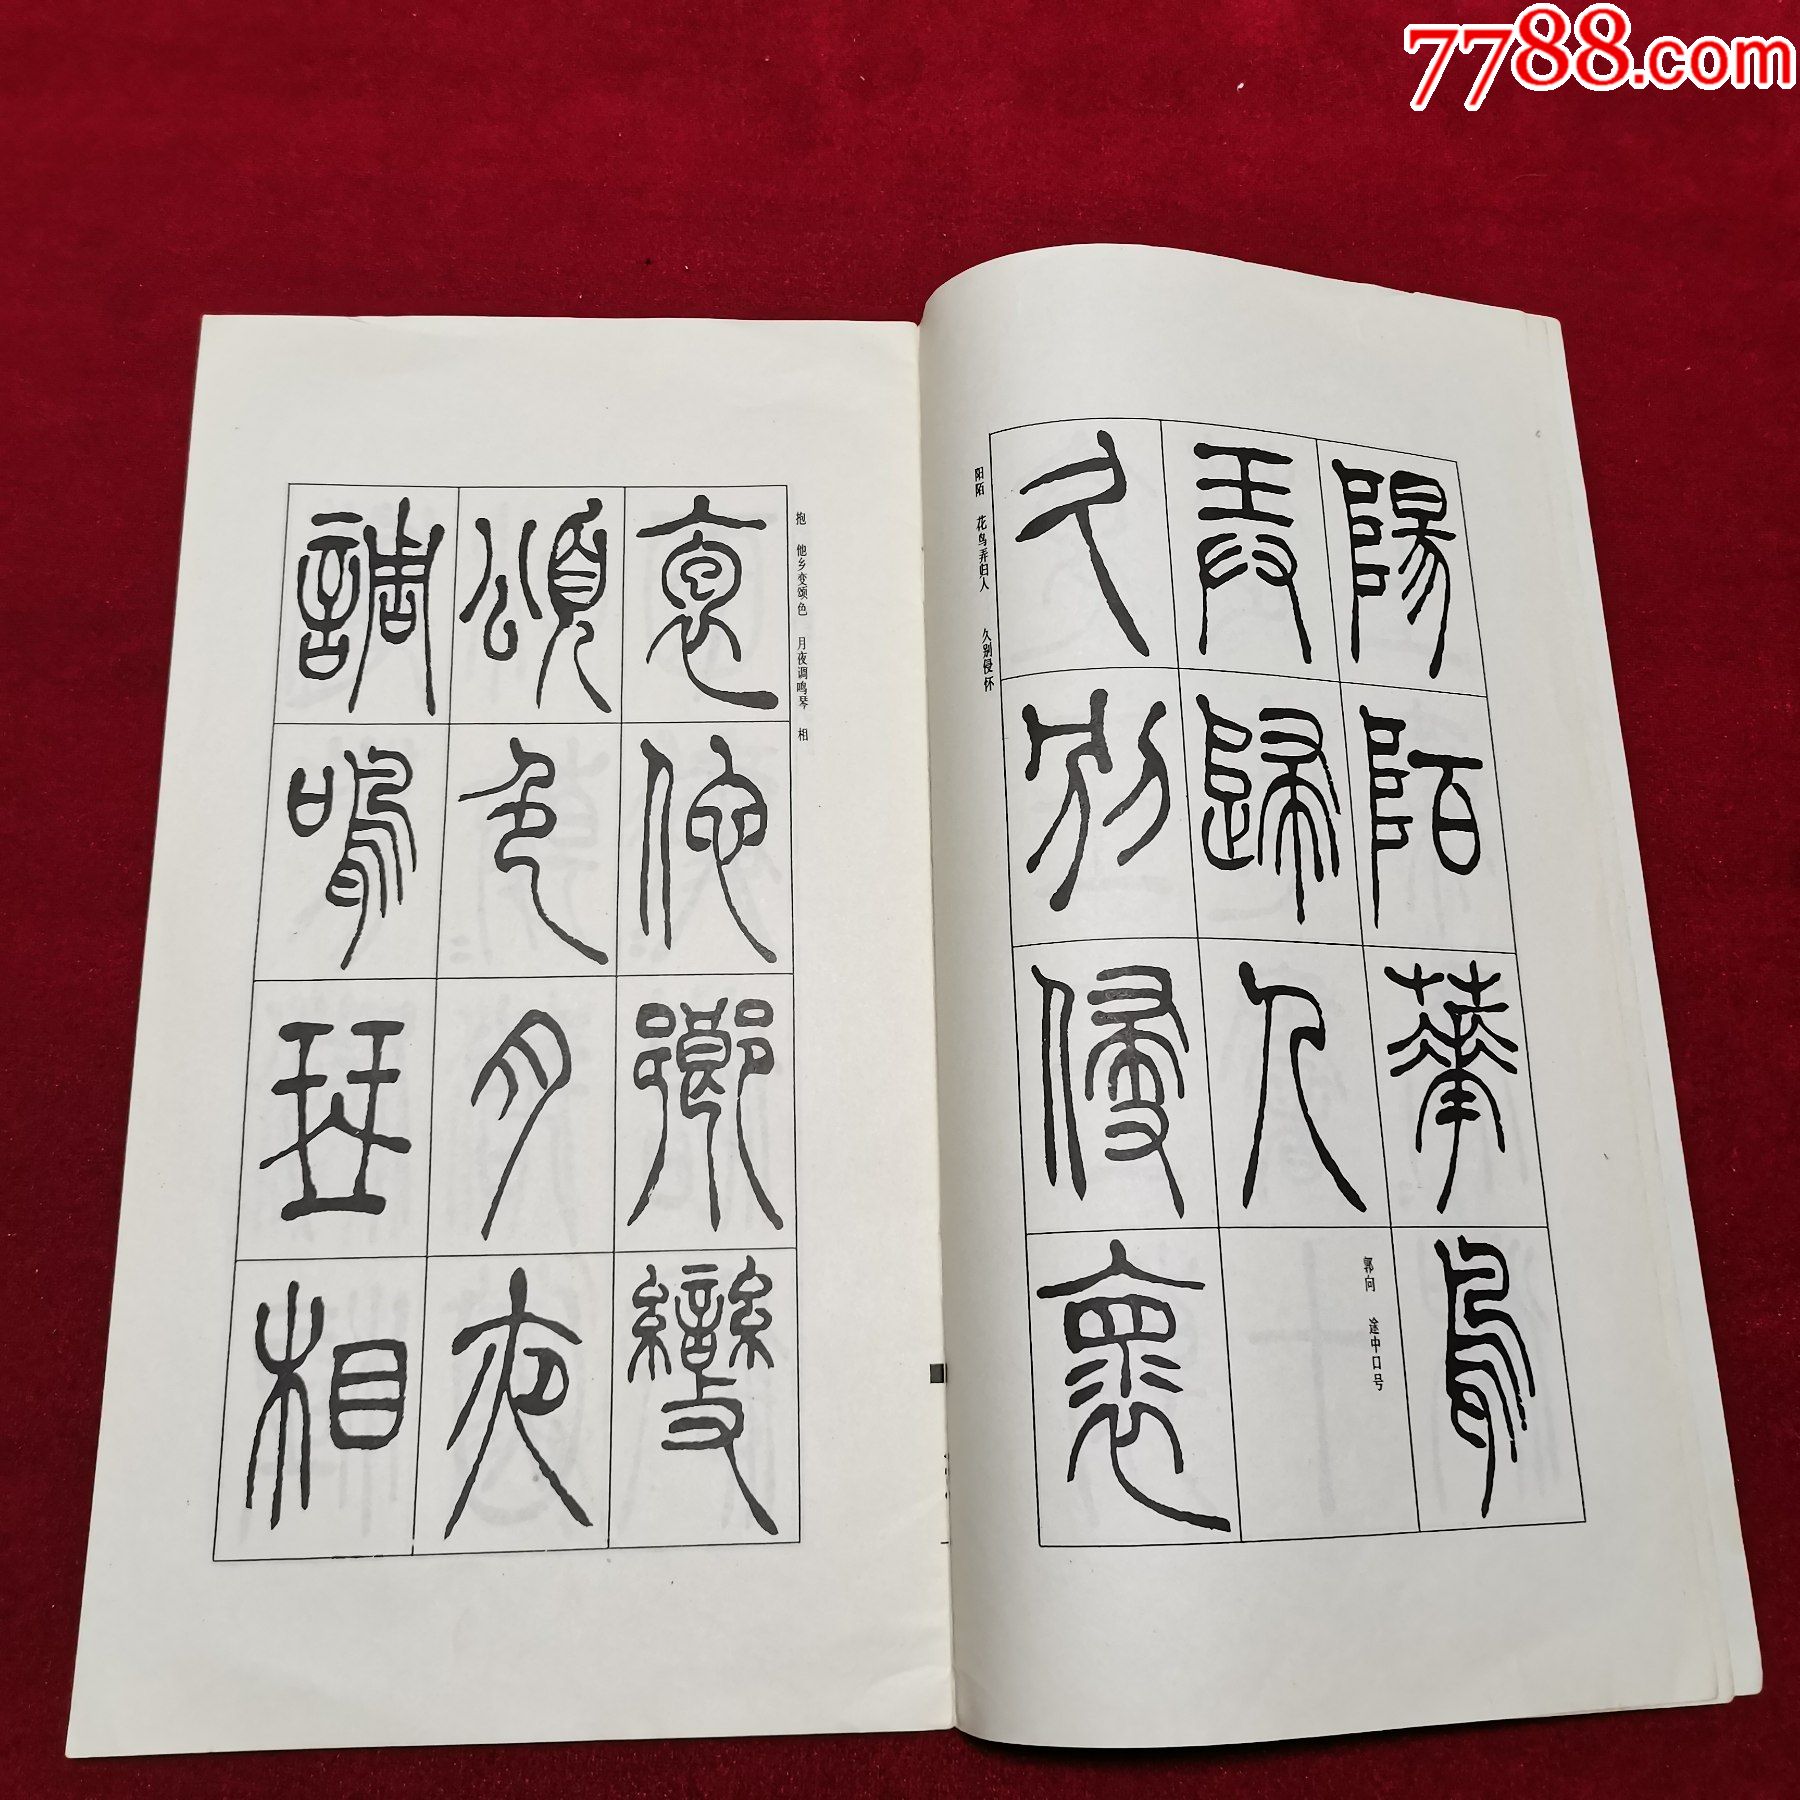 7788.com
陽陌華鳥
弄歸人
郭向 途中口号
久別侵褱
阳陌 花鸟弄归人 久别侵怀
抱 他乡变颂色 月夜调鸣琴 相
袌佗鄉變
頌色月夜
調鳴琴相